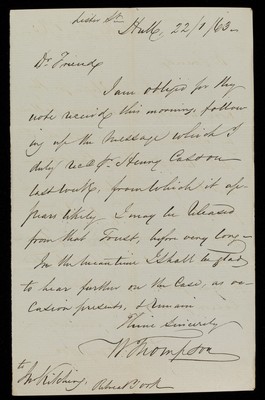 Lister St.
Hull, 22/1/63 –
Dr. Friend
I am obliged for thy
note receivd this morning, follow
ing up the message which I
duly recd fr. Henry Casson
last week, from which it ap-
pears likely I may be released
from that Trust, before very long –
In the meantime I shall be glad
to hear further on the Case, as oc-
casion presents, & remain
Thine Sincerely
W Thompson
to
Jn Kitching